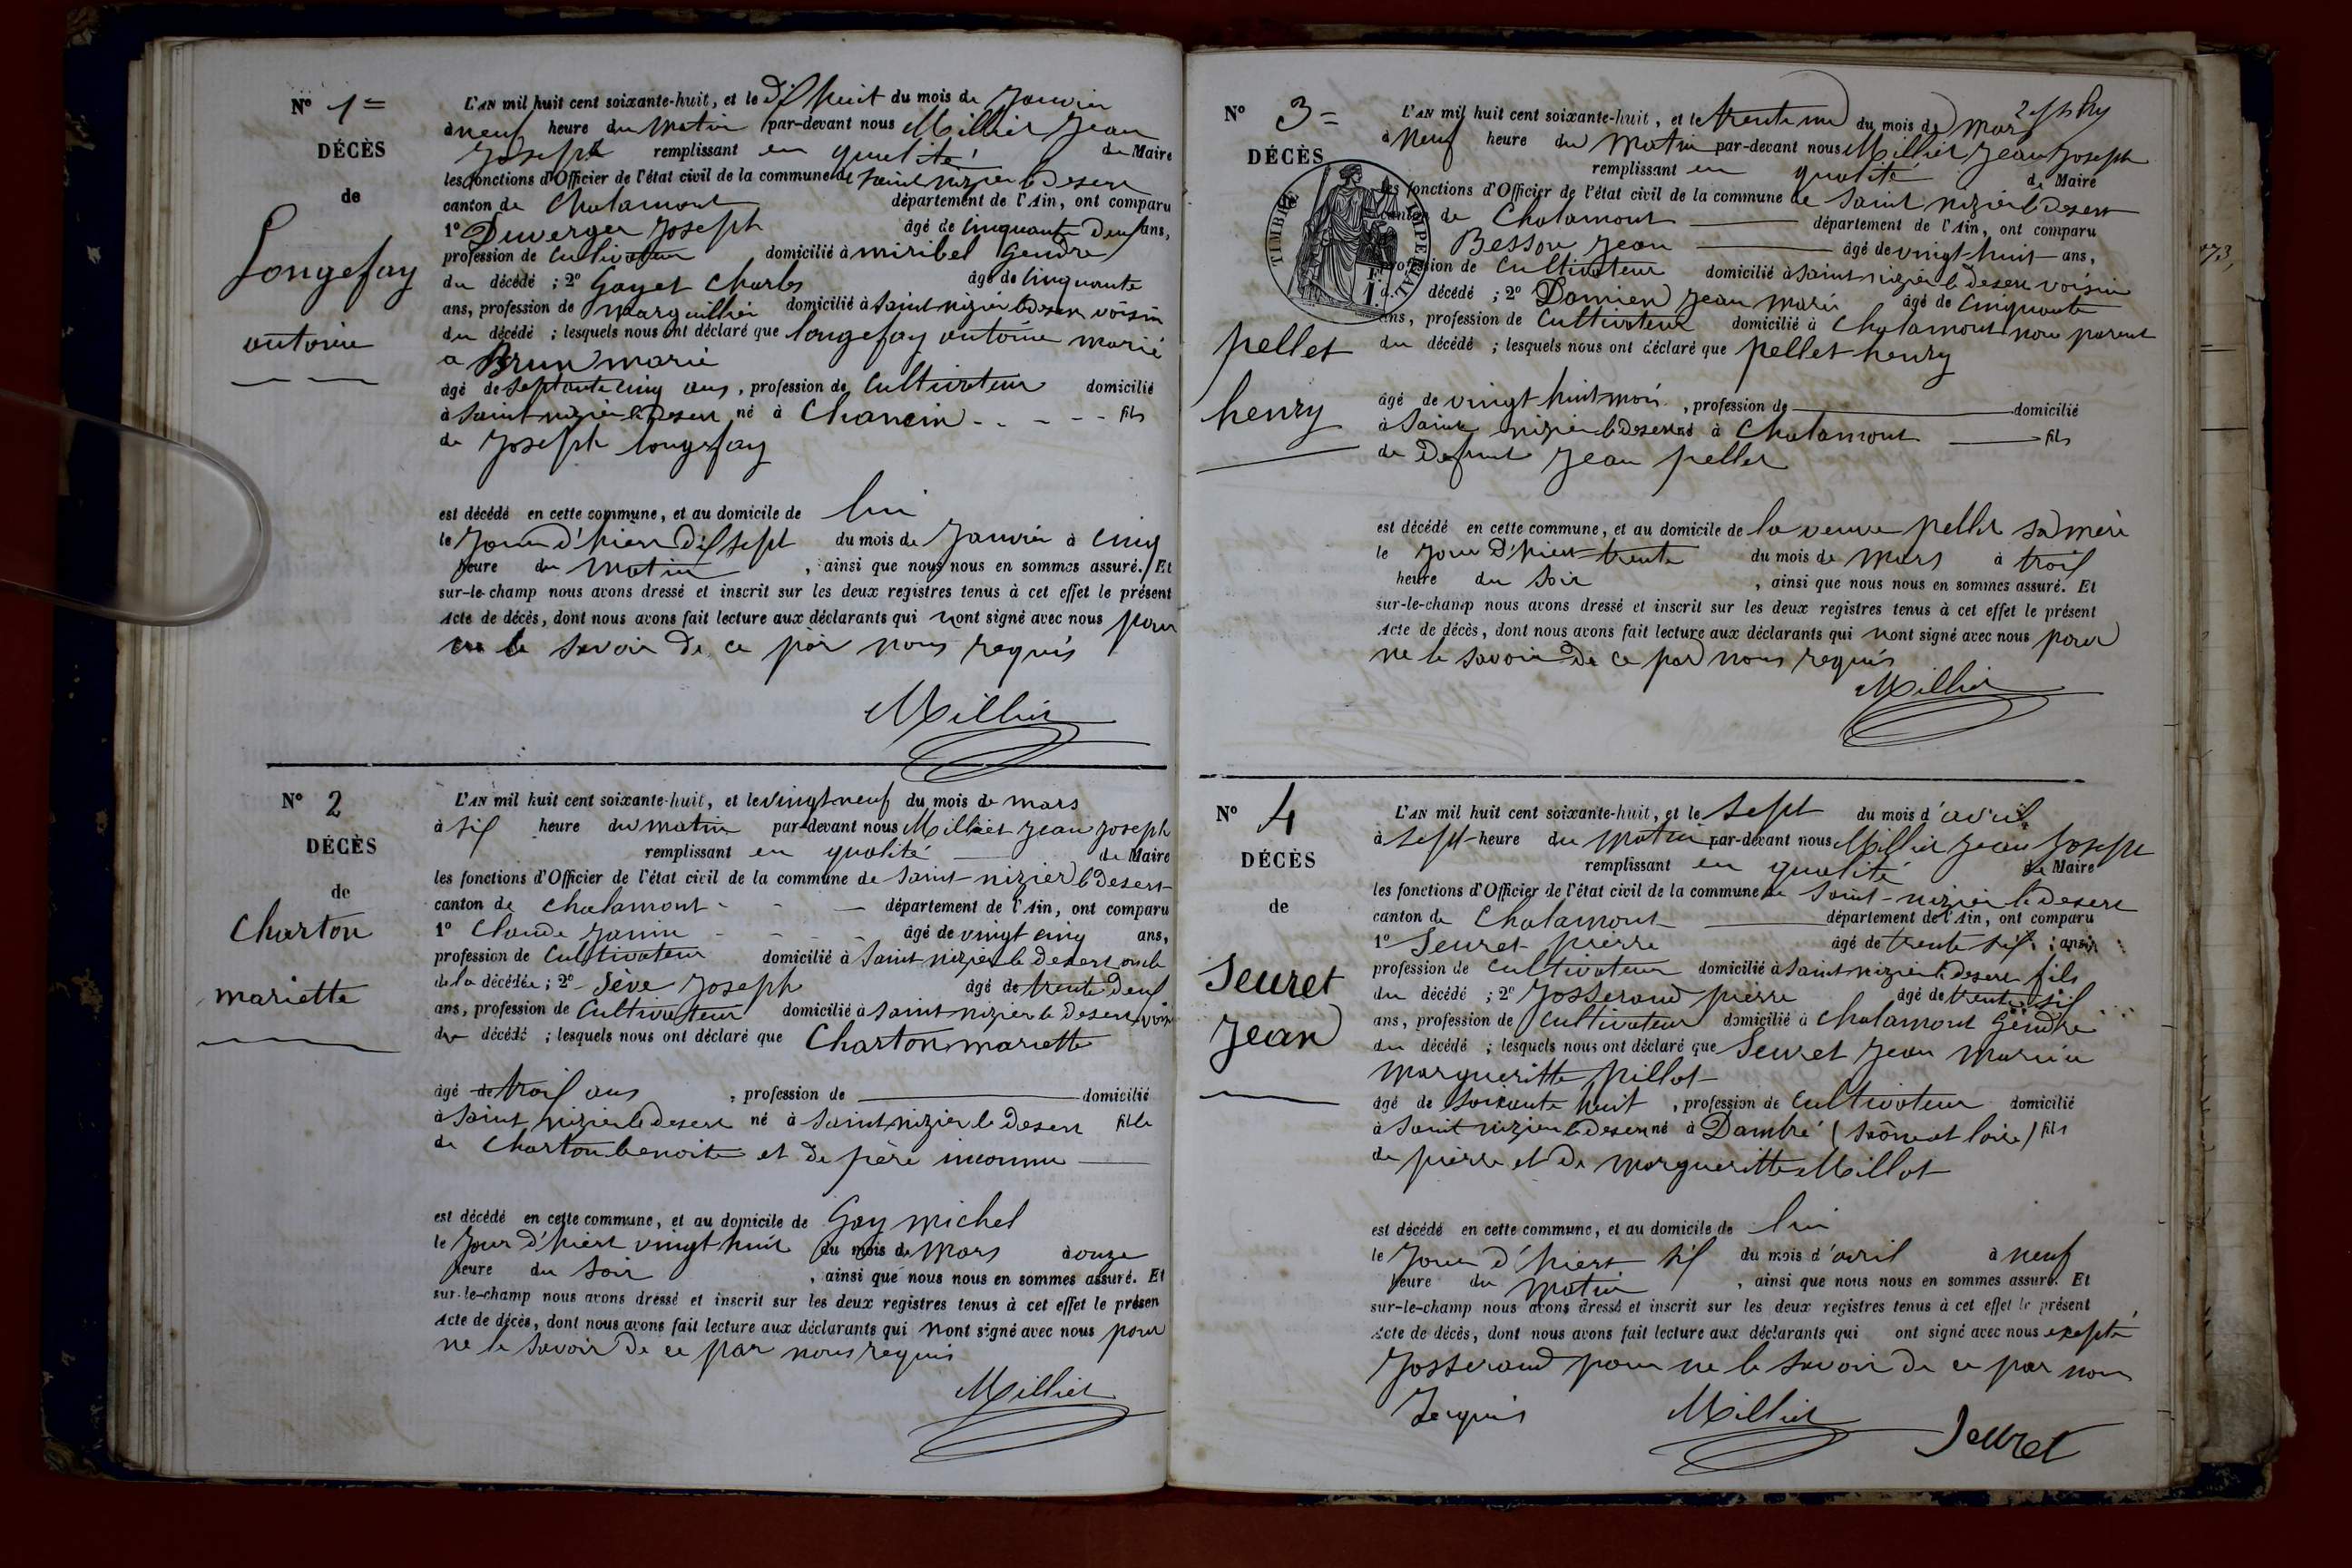 N° 1=
DÉCÈS
de
Longefay
antoine
L'AN mil huit cent soixante-huit, et le dix huit du mois de Janvier
à neuf heure du matin par-devant nous Milliet Jean
Joseph remplissant en qualité de Maire
les fonctions d'Officier de l'état civil de la commune de saint nizier le Desert
canton de Chalamont département de l'Ain, ont comparu
1° Duverger Joseph âgé de Cinquante Deux ans,
profession de Cultivateur domicilié à miribel Gendre
du décédé ; 2° Gayet Charles âgé de Cinquante
ans, profession de marguillier domicilié à Saint nizier le Desert voisin
du décédé ; lesquels nous ont déclaré que longefay antoine marié
a Brun marie
âgé de septante cinq ans, profession de Cultivateur domicilié
à Saint nizier le Desert né à Chanein - - - - fils
de Joseph longefay
est décédé en cette commune, et au domicile de lui
le Jour d'hier dix sept du mois de Janvier à cinq
heure du matin, ainsi que nous nous en sommes assuré. Et
sur-le-champ nous avons dressé et inscrit sur les deux registres tenus à cet effet le présent
Acte de décès, dont nous avons fait lecture aux déclarants qui nont signé avec nous pour
ne le savoir de ce par nous requis
Milliet
N° 2
DÉCÈS
de
Charton
mariette
L'AN mil huit cent soixante-huit, et le vingt neuf du mois de mars
à six heure du matin par-devant nous Milliet Jean Joseph
remplissant en qualité de Maire
les fonctions d'Officier de l'état civil de la commune de Saint-nizier le Desert
canton de Chalamont - - — département de l'Ain, ont comparu
1° Claude Janin - - - - âgé de vingt cinq ans,
profession de Cultivateur domicilié à Saint nizier le Desert oncle
de la décédée ; 2° Sève Joseph âgé de trente deux
ans, profession de Cultivateur domicilié à Saint nizier le Desert voisin
du décédé ; lesquels nous ont déclaré que Charton mariette
âgé de trois ans, profession de — domicilié
à Saint nizier le desert né à Saint nizier le Desert fille
de Charton benoite et de père inconnu —
est décédé en cette commune, et au domicile de Gay michel
le Jour d'hiert vingt huit du mois de Mars à onze
heure du soir, ainsi que nous nous en sommes assuré. Et
sur-le-champ nous avons dressé et inscrit sur les deux registres tenus à cet effet le présen
Acte de décès, dont nous avons fait lecture aux déclarants qui nont signé avec nous pour
ne le savoir de ce par nous requis
Milliet
N° 3=
DÉCÈS
de
TIMBRE IMPERIAL
pellet
henry
L'AN mil huit cent soixante-huit, et le trente un du mois de Mars
à neuf heure du Matin par-devant nous Milliet Jean Joseph
remplissant en qualité de Maire
les fonctions d'Officier de l'état civil de la commune de Saint nizier le Desert
canton de Chalamont — département de l'Ain, ont comparu
Besson Jean — âgé de vingt-huit ans,
profession de Cultivateur domicilié à Saint-nizier le Desert voisin
décédé ; 2° Damien Jean marie âgé de Cinquante
ans, profession de Cultivateur domicilié à Chalamont non parent
du décédé ; lesquels nous ont déclaré que pellet henry
âgé de vingt huit mois, profession de — domicilié
à Saint nizier le desert né à Chalamont — fils
de Defunt Jean pellet
est décédé en cette commune, et au domicile de la veuve pellet sa mère
le Jour D'hier trente du mois de Mars à trois
heure du Soir, ainsi que nous nous en sommes assuré. Et
sur-le-champ nous avons dressé et inscrit sur les deux registres tenus à cet effet le présent
Acte de décès, dont nous avons fait lecture aux déclarants qui nont signé avec nous pour
ne le savoir De ce par nous requis
Milliet
N° 4
DÉCÈS
de
Seuret
Jean
L'AN mil huit cent soixante-huit, et le sept du mois d'avril
à sept heure du Matin par-devant nous Milliet Jean Joseph
remplissant en qualité de Maire
les fonctions d'Officier de l'état civil de la commune de Saint-nizier le Desert
canton de Chalamont — département de l'Ain, ont comparu
1° Seuret pierre âgé de trente six ans,
profession de Cultivateur domicilié à Saint nizier le Desert fils
du décédé ; 2° Josserand pierre âgé de trente six
ans, profession de Cultivateur domicilié à Chalamont Gendre
du décédé ; lesquels nous ont déclaré que Seuret Jean Marié a
Margueritte Pillot
âgé de Soixante huit, profession de Cultivateur domicilié
à Saint nizier le Desert né à Dambré (Saône et loire) fils
de pierre et De Margueritte Millot
est décédé en cette commune, et au domicile de lui
le Jour d'hiert six du mois d'avril à neuf
heure du Matin, ainsi que nous nous en sommes assuré. Et
sur-le-champ nous avons dressé et inscrit sur les deux registres tenus à cet effet le présent
Acte de décès, dont nous avons fait lecture aux déclarants qui ont signé avec nous excepté
Josserand pour ne le savoir de ce par nous
requis
Milliet Seuret